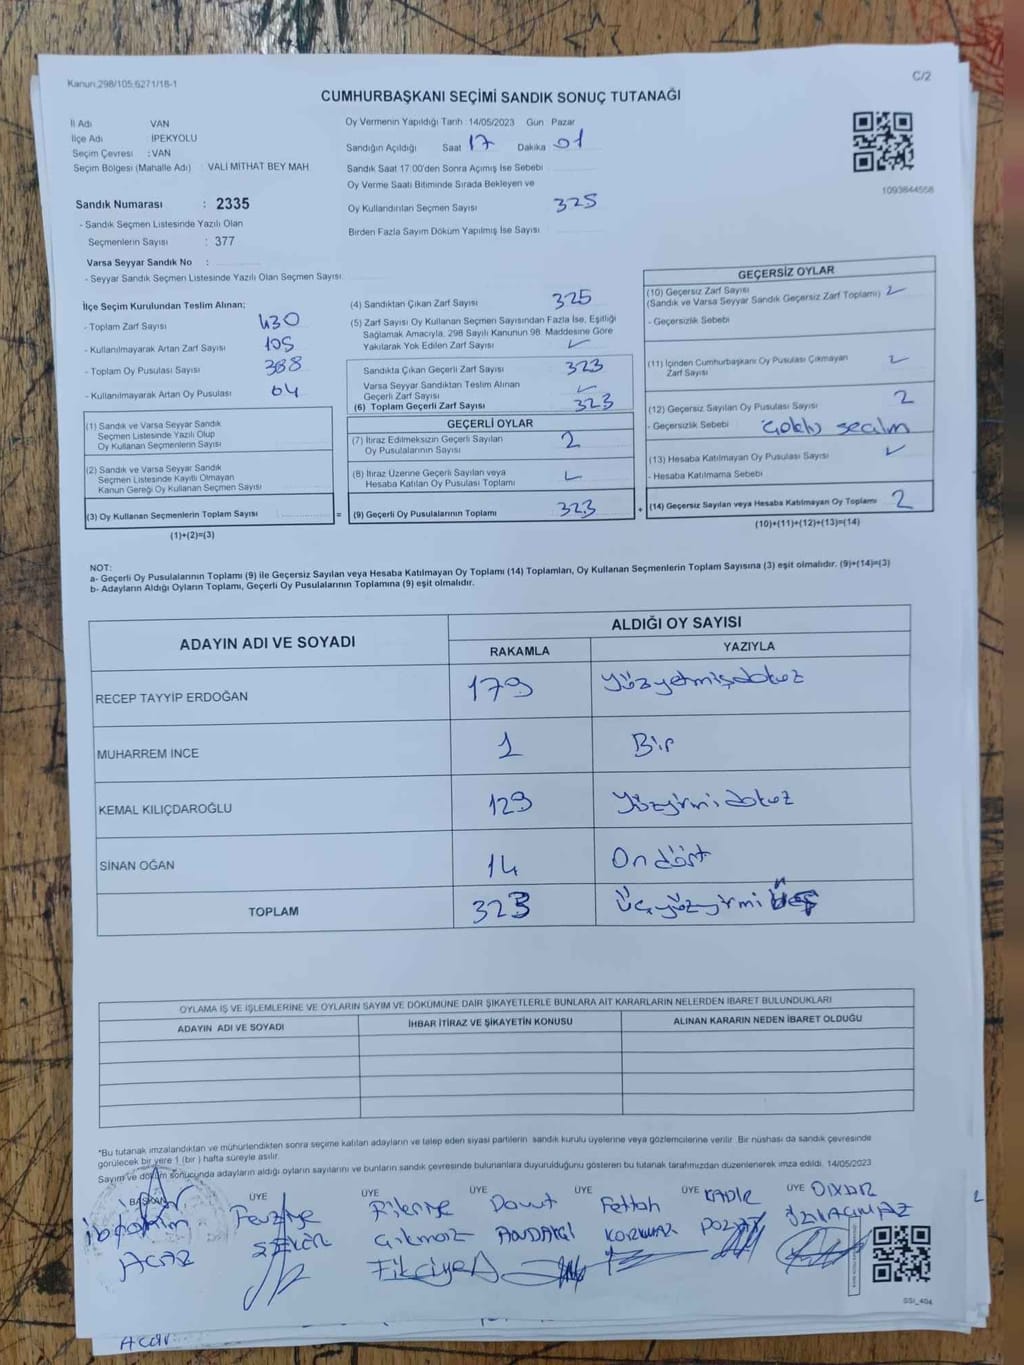 Kanun:298/105;6271/16-1
C/2
CUMHURBAŞKANI SEÇİMİ SANDIK SONUÇ TUTANAĞI
İl Adı VAN
İlçe Adı : İPEKYOLU
Seçim Çevresi : VAN
Seçim Bölgesi (Mahalle Adı) : VALİ MİTHAT BEY MAH
Sandık Numarası : 2335
- Sandık Seçmen Listesinde Yazılı Olan
Seçmenlerin Sayısı : 377
Varsa Seyyar Sandık No :
- Seyyar Sandık Seçmen Listesinde Yazılı Olan Seçmen Sayısı
Oy Vermenin Yapıldığı Tarih : 14/05/2023 Gün Pazar
Sandığın Açıldığı Saat 17 Dakika 01
Sandık Saat 17:00'den Sonra Açımış İse Sebebi
Oy Verme Saati Bitiminde Sırada Bekleyen ve
Oy Kullandırılan Seçmen Sayısı 325
Birden Fazla Sayım Döküm Yapılmış İse Sayısı
1093844558
İlçe Seçim Kurulundan Teslim Alınan;
- Toplam Zarf Sayısı 430
- Kullanılmayarak Artan Zarf Sayısı 105
- Toplam Oy Pusulası Sayısı 388
- Kullanılmayarak Artan Oy Pusulası 64
(1) Sandık ve Varsa Seyyar Sandık
Seçmen Listesinde Yazılı Olup
Oy Kullanan Seçmenlerin Sayısı
(2) Sandık ve Varsa Seyyar Sandık
Seçmen Listesinde Kayıtlı Olmayan
Kanun Gereği Oy Kullanan Seçmen Sayısı
(3) Oy Kullanan Seçmenlerin Toplam Sayısı
(1)+(2)=(3)
(4) Sandıktan Çıkan Zarf Sayısı 325
(5) Zarf Sayısı Oy Kullanan Seçmen Sayısından Fazla İse, Eşitliği
Sağlamak Amacıyla, 298 Sayılı Kanunun 98. Maddesine Göre
Yakılarak Yok Edilen Zarf Sayısı
Sandıkta Çıkan Geçerli Zarf Sayısı 323
Varsa Seyyar Sandıktan Teslim Alınan
Geçerli Zarf Sayısı
(6) Toplam Geçerli Zarf Sayısı 323
GEÇERLİ OYLAR
(7) İtiraz Edilmeksizin Geçerli Sayılan
Oy Pusulasının Sayısı 2
(8) İtiraz Üzerine Geçerli Sayılan veya
Hesaba Katılan Oy Pusulası Toplamı
= (9) Geçerli Oy Pusulalarının Toplamı 323
GEÇERSİZ OYLAR
(10) Geçersiz Zarf Sayısı
(Sandık ve Varsa Seyyar Sandık Geçersiz Zarf Toplamı)
- Geçersizlik Sebebi
(11) İçinden Cumhurbaşkanı Oy Pusulası Çıkmayan
Zarf Sayısı
(12) Geçersiz Sayılan Oy Pusulası Sayısı 2
- Geçersizlik Sebebi Çoklu seçim
(13) Hesaba Katılmayan Oy Pusulası Sayısı
- Hesaba Katılmama Sebebi
+ (14) Geçersiz Sayılan veya Hesaba Katılmayan Oy Toplamı 2
(10)+(11)+(12)+(13)=(14)
NOT:
a- Geçerli Oy Pusulalarının Toplamı (9) ile Geçersiz Sayılan veya Hesaba Katılmayan Oy Toplamı (14) Toplamları, Oy Kullanan Seçmenlerin Toplam Sayısına (3) eşit olmalıdır. (9)+(14)=(3)
b- Adayların Aldığı Oyların Toplamı, Geçerli Oy Pusulalarının Toplamına (9) eşit olmalıdır.
ADAYIN ADI VE SOYADI
ALDIĞI OY SAYISI
RAKAMLA YAZIYLA
RECEP TAYYİP ERDOĞAN 179 Yüzyetmişdokuz
MUHARREM İNCE 1 Bir
KEMAL KILIÇDAROĞLU 129 Yüzyirmidokuz
SİNAN OĞAN 14 On dört
TOPLAM 323 Üçyüzyirmi üç
OYLAMA İŞ VE İŞLEMLERİNE VE OYLARIN SAYIM VE DÖKÜMÜNE DAİR ŞİKAYETLERLE BUNLARA AİT KARARLARIN NELERDEN İBARET BULUNDUKLARI
ADAYIN ADI VE SOYADI İHBAR İTİRAZ VE ŞİKAYETİN KONUSU ALINAN KARARIN NEDEN İBARET OLDUĞU
*Bu tutanak imzalandıktan ve mühürlendikten sonra seçime katılan adayların ve talep eden siyasi partilerin sandık kurulu üyelerine veya gözlemcilerine verilir. Bir nüshası da sandık çevresinde
görülecek bir yere 1 (bir) hafta süreyle asılır.
Sayım ve döküm sonucunda adayların aldığı oyların sayılarını ve bunların sandık çevresinde bulunanlara duyurulduğunu gösteren bu tutanak tarafımızdan düzenlenerek imza edildi. 14/05/2023
BAŞKAN ÜYE ÜYE ÜYE ÜYE ÜYE ÜYE
İbrahim Fevziye Davut Fettah KADİR
ACAR KORKMAZ
SSİ_404
Acar